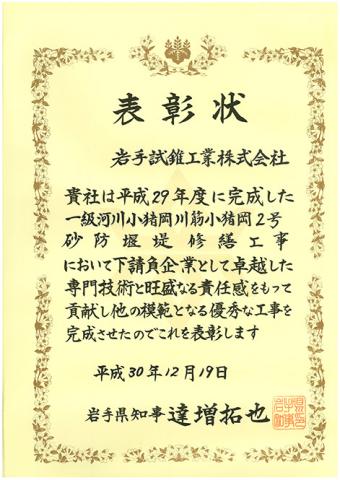 表彰状
岩手試錐工業株式会社
貴社は平成29年度に完成した
一級河川小猪岡川筋小猪岡2号
砂防堰堤修繕工事
において下請負企業として卓越した
専門技術と旺盛なる責任感をもって
貢献し他の模範となる優秀な工事を
完成させたのでこれを表彰します
平成30年12月19日
岩手県知事 達増拓也